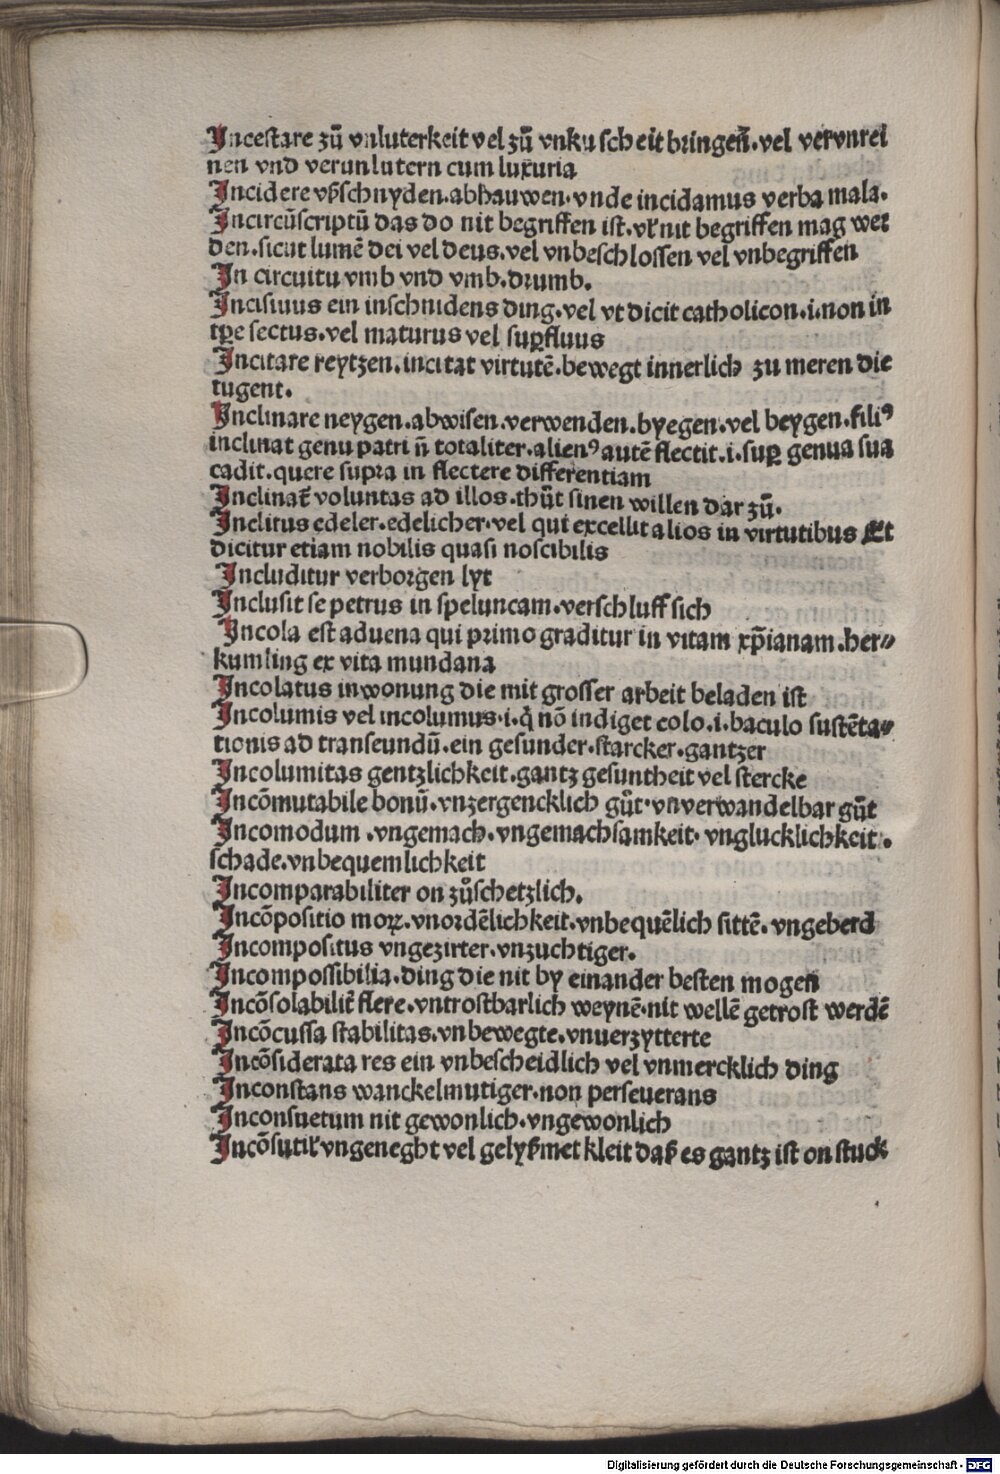 Incestare zū vnluterkeit vel zū vnkuscheit bringeñ.vel vervnrei
nen vnd verunlutern cum luxuria
Incidere vßschnyden.abhauwen.vnde incidamus verba mala.
Incircūscriptū das do nit begriffen ist.vł nit begriffen mag wer
den.sicut lumē dei vel deus.vel vnbeschlossen vel vnbegriffen
In circuitu vmb vnd vmb.drumb.
Incisiuus ein inschnidens ding.vel vt dicit catholicon.i.non in
tꝑe sectus.vel maturus vel suꝑfluus
Incitare reytzen.incitat virtutē.bewegt innerlich zu meren die
tugent.
Inclinare neygen.abwisen.verwenden.byegen.vel beygen.filiꝰ
inclinat genu patri n̄ totaliter.alienꝰ autē flectit.i.suꝑ genua sua
cadit.quere supra in flectere differentiam
Inclinat̄ voluntas ad illos.thūt sinen willen dar zū.
Inclitus edeler.edelicher.vel qui excellit alios in virtutibus Et
dicitur etiam nobilis quasi noscibilis
Includitur verborgen lyt
Inclusit se petrus in speluncam.verschluff sich
Incola est aduena qui primo graditur in vitam xp̄ianam.her⸗
kumling ex vita mundana
Incolatus inwonung die mit grosser arbeit beladen ist
Incolumis vel incolumus.i.q̄ nō indiget colo.i.baculo sustēta⸗
tionis ad transeundū.ein gesunder.starcker.gantzer
Incolumitas gentzlichkeit.gantz gesuntheit vel stercke
Incōmutabile bonū.vnzergencklich gūt.vnverwandelbar gūt
Incomodum .vngemach.vngemachsamkeit.vnglucklichkeit.
schade.vnbequemlichkeit
Incomparabiliter on zůschetzlich.
Incōpositio moꝝ.vnordēlichkeit.vnbequēlich sittē.vngeberd
Incompositus vngezirter.vnzuchtiger.
Incompossibilia.ding die nit by einander besten mogen
Incōsolabilit̄ flere.vntrostbarlich weynē.nit wellē getrost werdē
Incōcussa stabilitas.vnbewegte.vnuerzytterte
Incōsiderata res ein vnbescheidlich vel vnmercklich ding
Inconstans wanckelmutiger.non perseuerans
Inconsuetum nit gewonlich.vngewonlich
Incōsutił vngeneght vel gelyßmet kleit daß es gantz ist on stuck
Digitalisierung gefördert durch die Deutsche Forschungsgemeinschaft - DFG